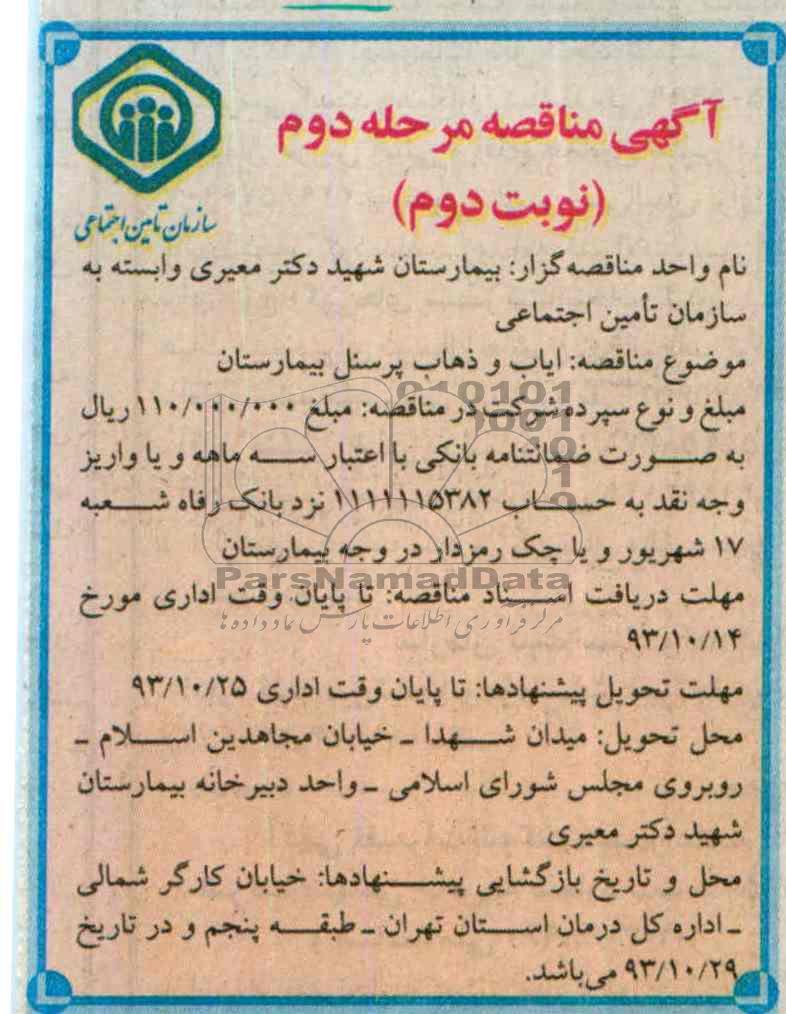 آگهی مناقصه مرحله دوم
(نوبت دوم)
سازمان تامین اجتماعی
نام واحد مناقصه‌گزار: بیمارستان شهید دکتر معیری وابسته به
سازمان تأمین اجتماعی
موضوع مناقصه: ایاب و ذهاب پرسنل بیمارستان
مبلغ و نوع سپرده شرکت در مناقصه: مبلغ ۱۱۰/۰۰۰/۰۰۰ ریال
به صورت ضمانتنامه بانکی با اعتبار سه ماهه و یا واریز
وجه نقد به حساب ۱۱۱۱۱۱۵۳۸۲ نزد بانک رفاه شعبه
۱۷ شهریور و یا چک رمزدار در وجه بیمارستان
ParsNamadData
مهلت دریافت اسناد مناقصه: تا پایان وقت اداری مورخ
مرکز فرآوری اطلاعات پارس نماد داده ها
۹۳/۱۰/۱۴
مهلت تحویل پیشنهادها: تا پایان وقت اداری ۹۳/۱۰/۲۵
محل تحویل: میدان شهدا ـ خیابان مجاهدین اسلام ـ
روبروی مجلس شورای اسلامی ـ واحد دبیرخانه بیمارستان
شهید دکتر معیری
محل و تاریخ بازگشایی پیشنهادها: خیابان کارگر شمالی
ـ اداره کل درمان استان تهران ـ طبقه پنجم و در تاریخ
۹۳/۱۰/۲۹ می‌باشد.